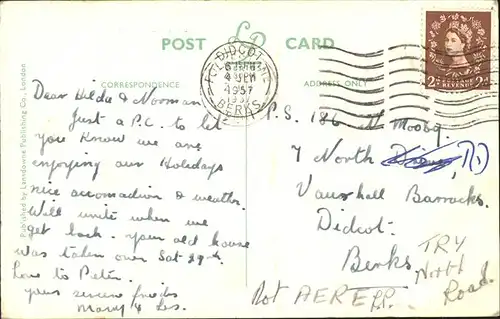 POST LD CARD
CORRESPONDENCE
ADDRESS ONLY
Published by Lansdowne Publishing Co., London
DIDCOT
4 SEP
1957
BERKS
REVENUE
2d 2d
Dear Hilda & Nooman
Just a P.C. to let
you know we are
enjoying our Holidays
nice accomadion & weather.
Will write when we
get back. your old house
was taken over Sat 29th.
love to Peter.
yours sincere frieds
Mary & Les.
P.S. 186. N Moody.
7 North
Vauxhall Barracks.
Didcot.
Berks.
TRY
North
Road.
Not AERE